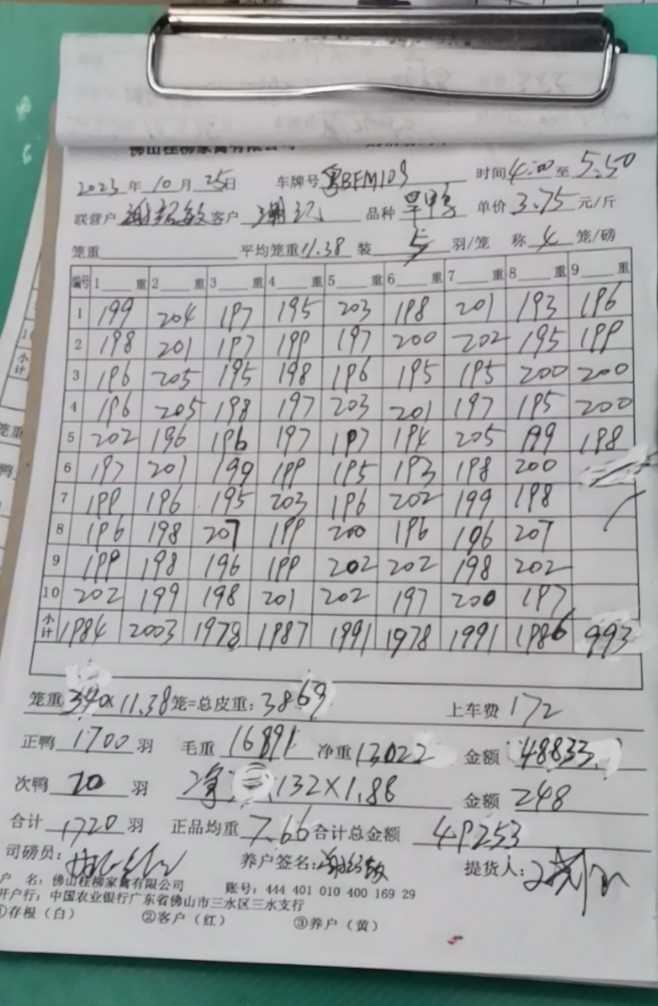 佛山桂柳家禽有限公司
2023年10月25日 车牌号粤BFM109 时间4:00至5:50
联营户 客户 品种旱鸭 单价3.75元/斤
笼重 平均笼重11.38 装5羽/笼 称4笼/磅
编号 1 重 2 重 3 重 4 重 5 重 6 重 7 重 8 重 9 重
1 199 204 197 195 203 198 201 193 196
2 198 201 197 199 197 200 202 195 199
3 196 205 195 198 196 195 195 200 200
4 196 205 198 197 203 201 197 195 200
5 202 196 196 197 197 194 205 199 198
6 197 201 199 199 195 193 198 200
7 199 196 195 203 196 202 199 198
8 196 198 207 199 200 196 196 207
9 199 198 196 199 202 202 198 202
10 202 199 198 201 202 197 200 197
小计 1984 2003 1978 1987 1991 1978 1991 1986 993
笼重340×11.38笼=总皮重:3869 上车费172
正鸭1700羽 毛重16891 净重13022 金额48833.
次鸭20羽 净 132×1.88 金额248
合计1720羽 正品均重7.66 合计总金额49253
司磅员: 养户签名: 提货人:
户 名:佛山桂柳家禽有限公司 账号:444 401 010 400 169 29
开户行:中国农业银行广东省佛山市三水区三水支行
①存根(白) ②客户(红) ③养户(黄)